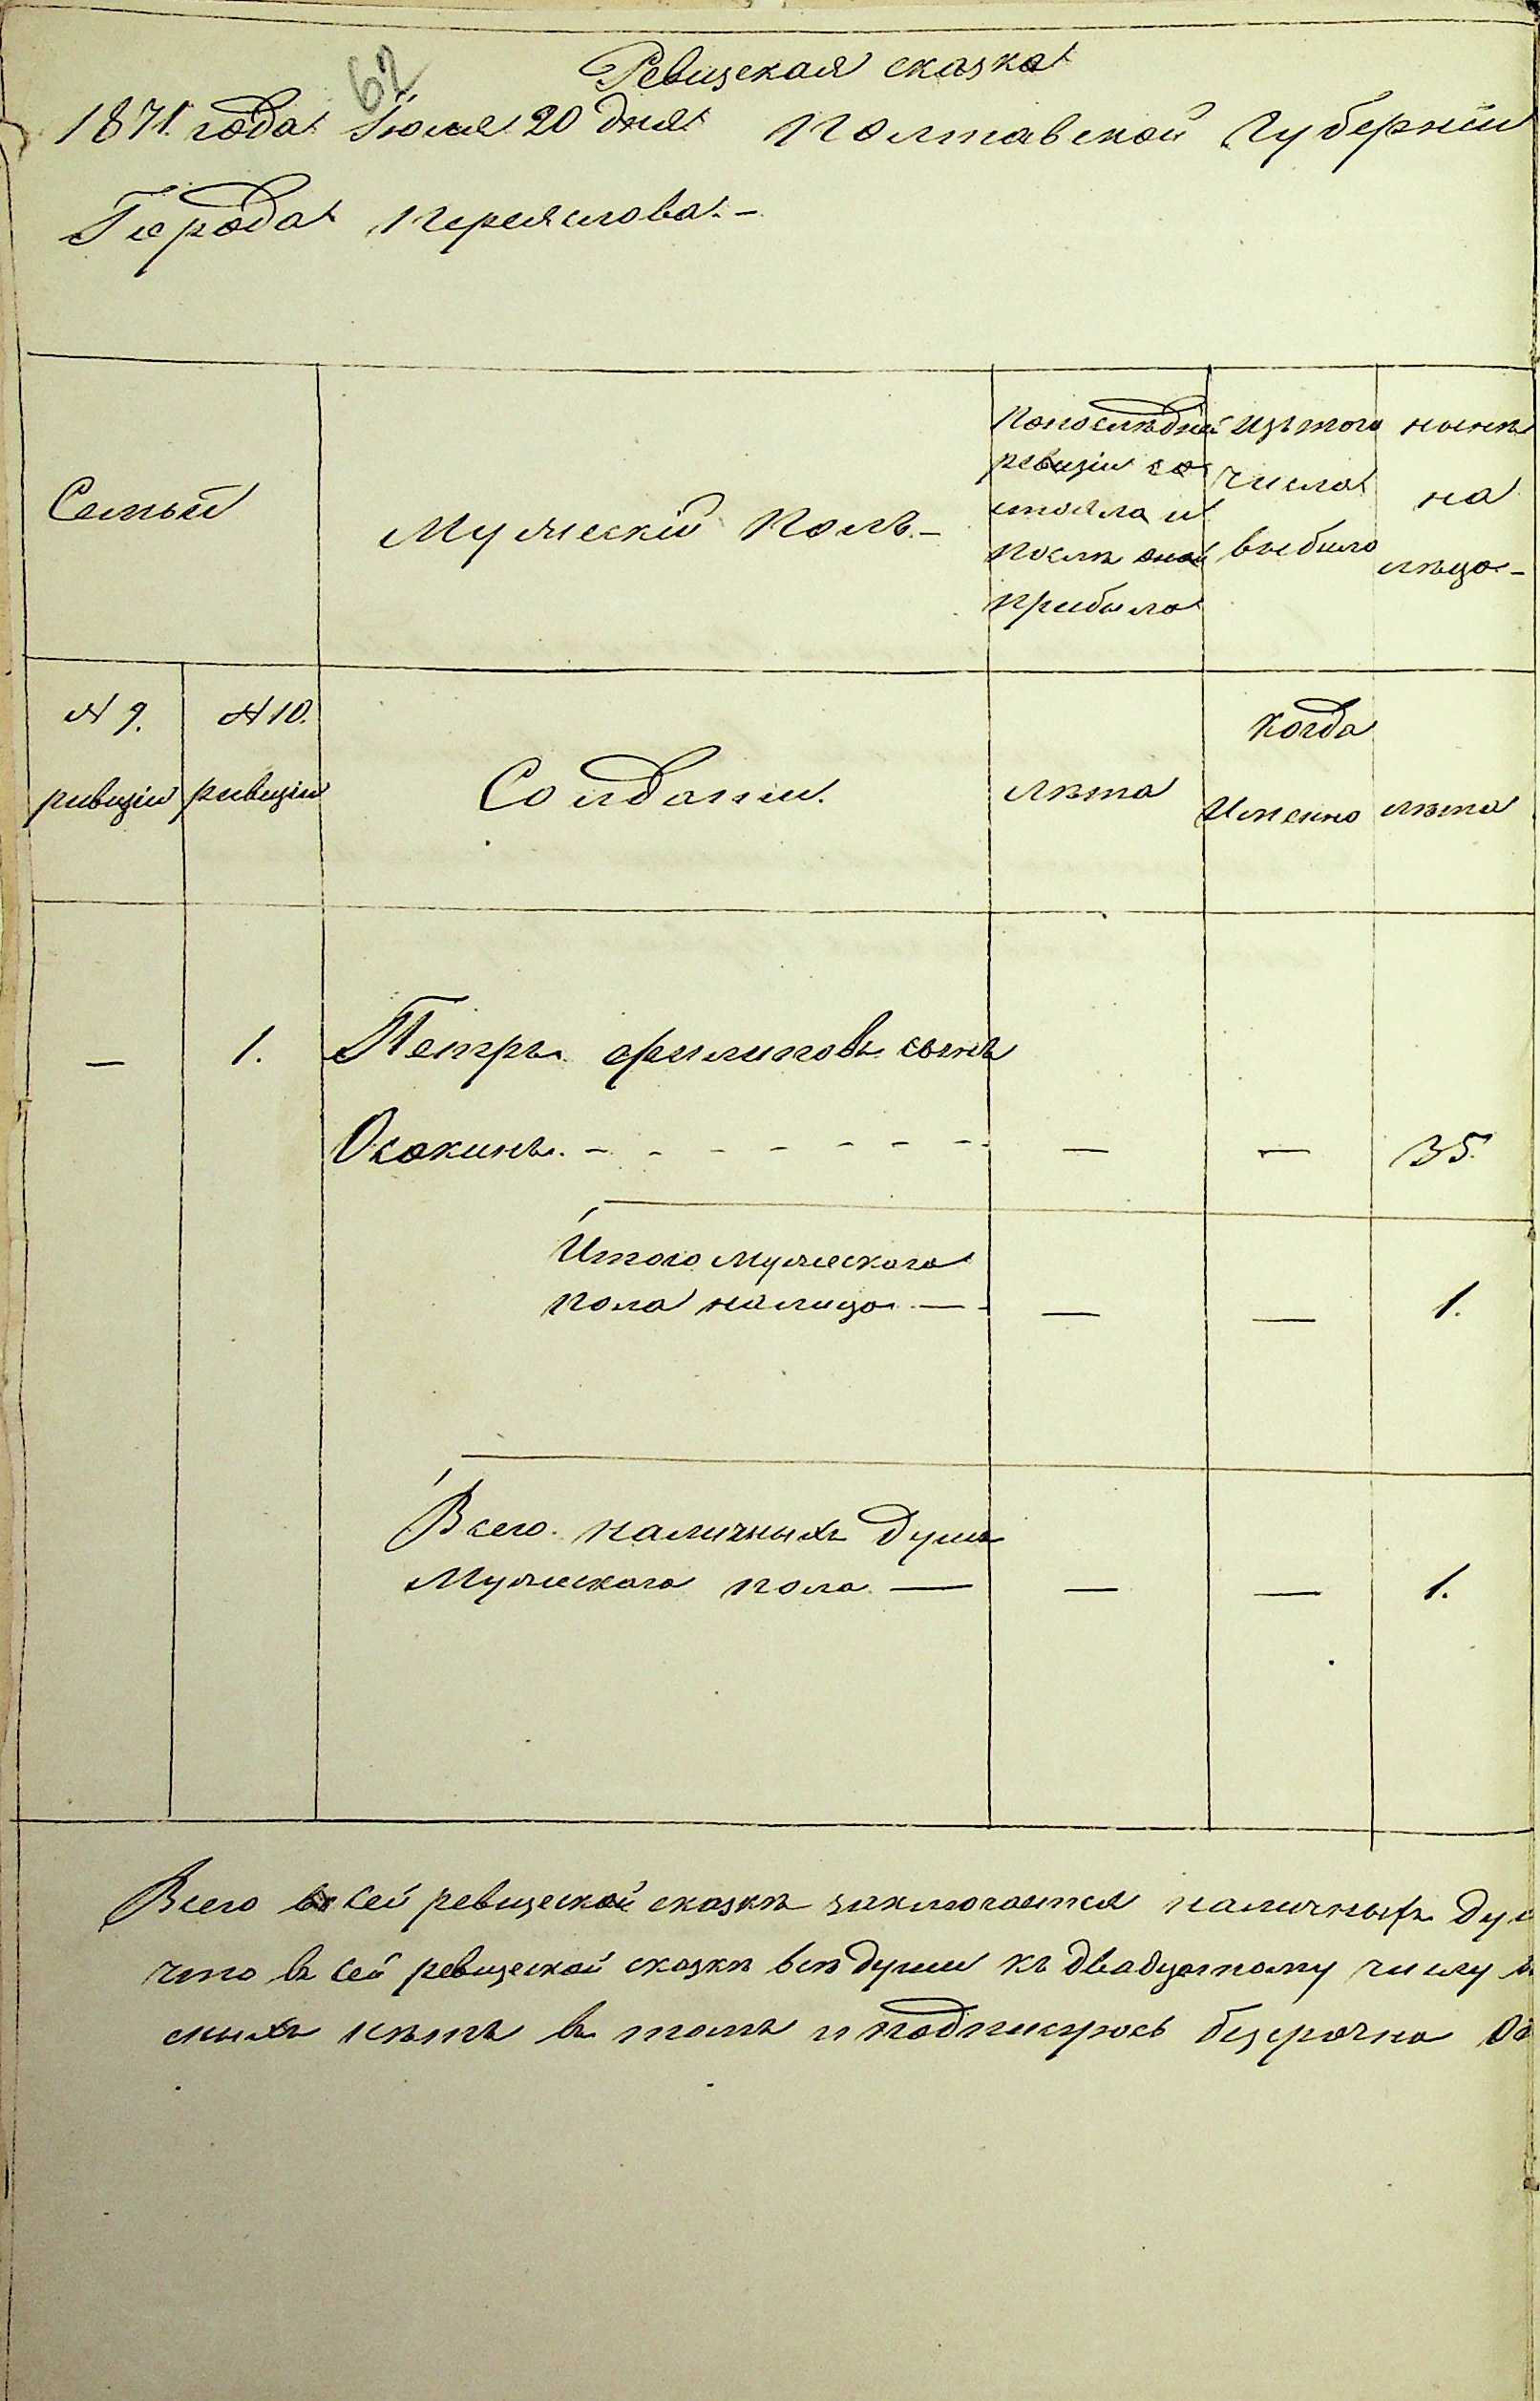 62
Ревизская сказка
1871 года Іюля 20 дня Полтавской Губерніи
Города Переяслова.-
Семьи
Мужескій Полъ.-
По последней
ревизіи со-
стояла и
после оной
прибыло
изъ того
числа
выбыло
ныне
на
лицо-
N 9.
ривизіи
N 10.
ривизіи
Солдат
лѣта
Когда
Именно
лѣта
— 1. Петръ Филиповъ сынъ
Осокинъ. - - - - - - - - — — 35.
Итого Мужескаго
пола налицо — — — 1.
Всего наличныхъ душъ
Мужескаго пола — — — 1.
Всего в сей ревизской сказкѣ заключается наличныхъ ду
что в сей ревизской сказкѣ всѣ души къ двадцатому числу
ныхъ нѣтъ в томъ и подписуюсь безсрочно